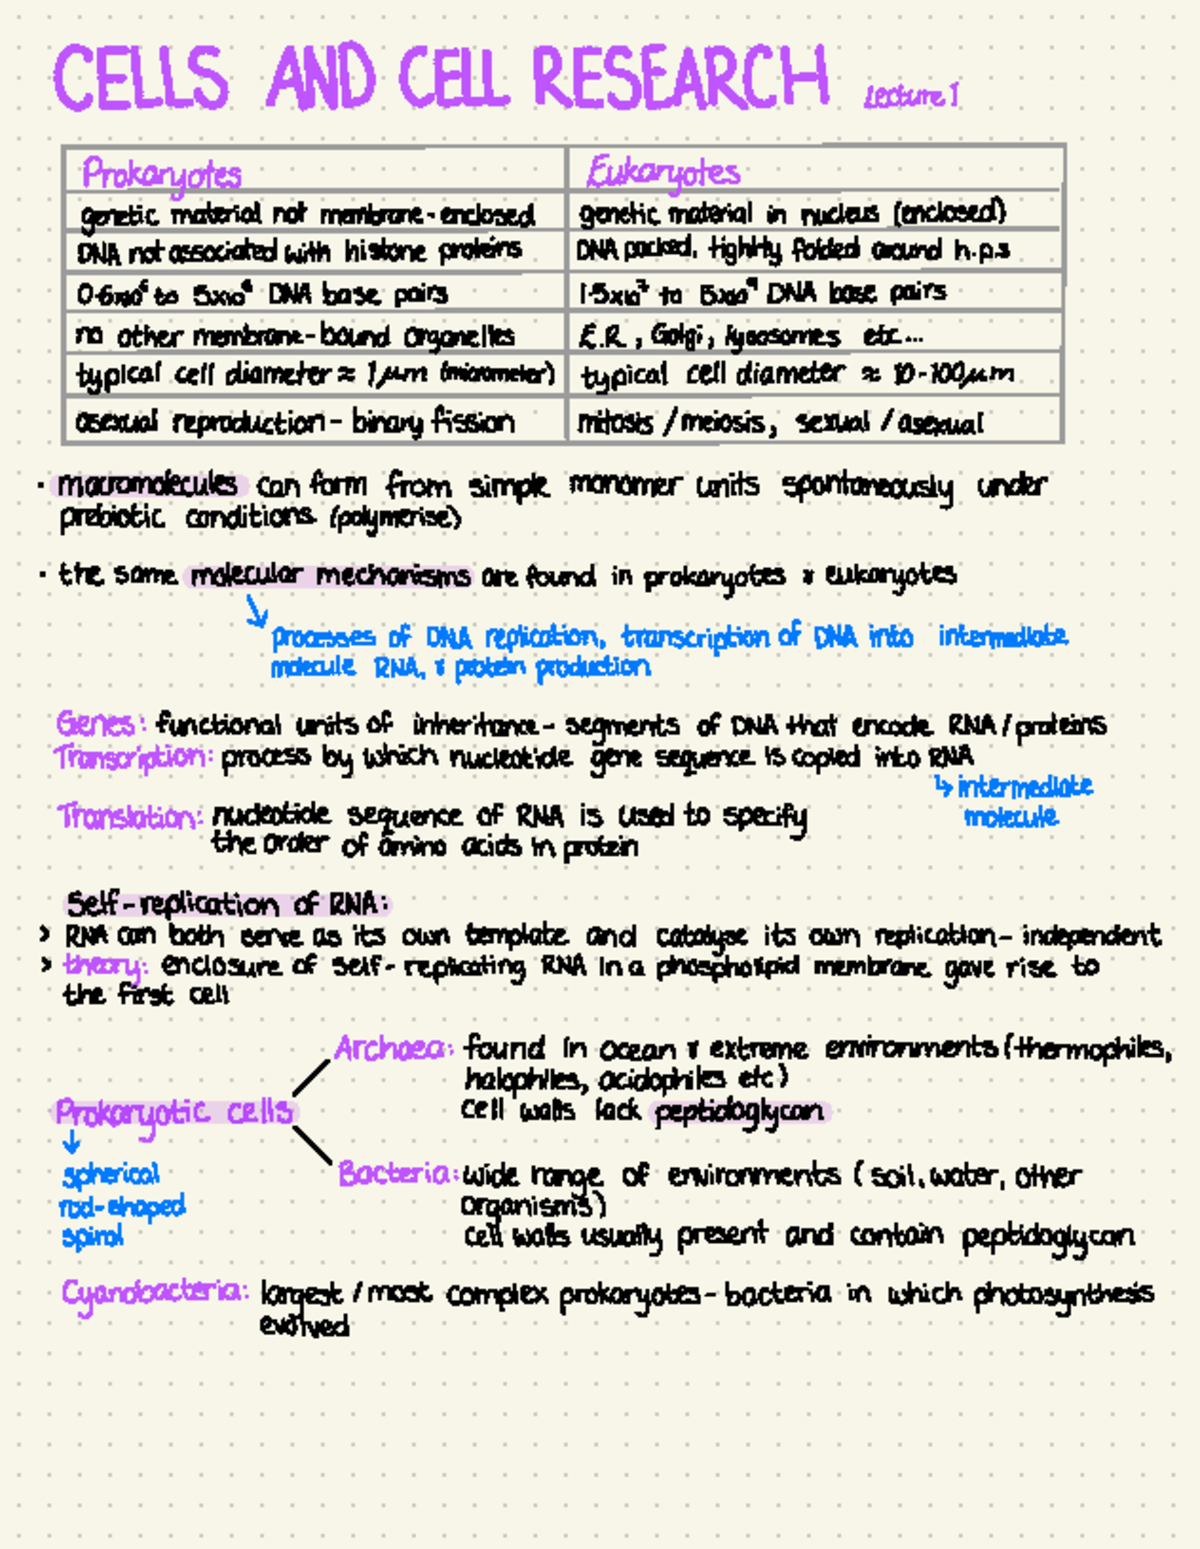 CELLS AND CELL RESEARCH Lecture 1
Prokaryotes Eukaryotes
genetic material not membrane-enclosed genetic material in nucleus (enclosed)
DNA not associated with histone proteins DNA packed, tightly folded around h.p.s
0.6x10⁶ to 5x10⁶ DNA base pairs 1.5x10⁷ to 5x10⁹ DNA base pairs
no other membrane-bound organelles E.R., Golgi, lysosomes etc...
typical cell diameter ≈ 1μm (micrometer) typical cell diameter ≈ 10-100μm
asexual reproduction - binary fission mitosis / meiosis, sexual / asexual
· macromolecules can form from simple monomer units spontaneously under
prebiotic conditions (polymerise)
· the same molecular mechanisms are found in prokaryotes & eukaryotes
↘ processes of DNA replication, transcription of DNA into intermediate
molecule RNA, & protein production
Genes: functional units of inheritance - segments of DNA that encode RNA / proteins
Transcription: process by which nucleotide gene sequence is copied into RNA
↳ intermediate
molecule
Translation: nucleotide sequence of RNA is used to specify
the order of amino acids in protein
Self-replication of RNA:
> RNA can both serve as its own template and catalyse its own replication - independent
> theory: enclosure of self-replicating RNA in a phospholipid membrane gave rise to
the first cell
Archaea: found in ocean & extreme environments (thermophiles,
halophiles, acidophiles etc)
cell walls lack peptidoglycan
Prokaryotic cells
↓
spherical
rod-shaped
spiral
Bacteria: wide range of environments (soil, water, other
organisms)
cell walls usually present and contain peptidoglycan
Cyanobacteria: largest / most complex prokaryotes - bacteria in which photosynthesis
evolved